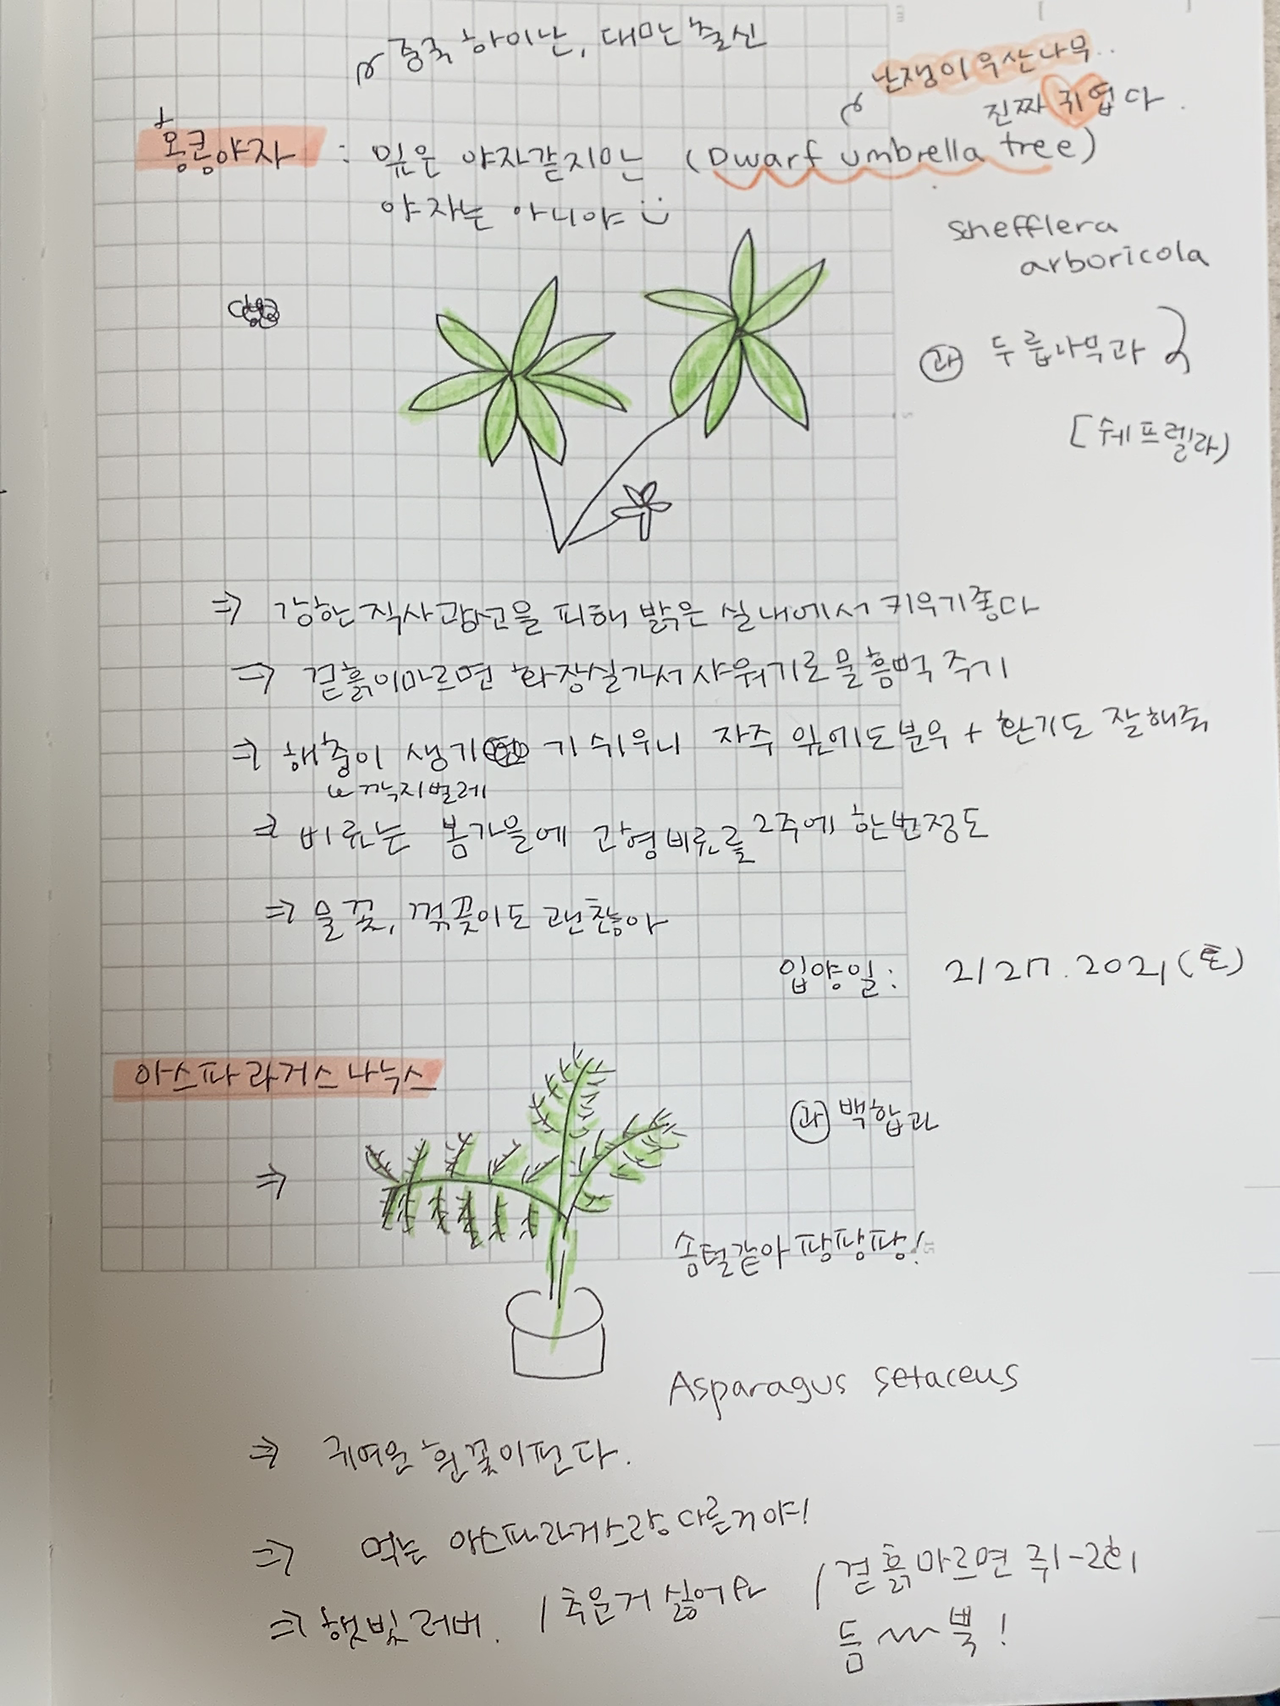 중국 하이난, 대만 출신
난쟁이 우산나무..
진짜 귀엽다.
홍콩야자 : 잎은 야자같지만 (Dwarf umbrella tree)
야자는 아니야
shefflera
arboricola
과 두릅나무과
[쉐프렐라)
⇒ 강한직사광선을 피해 밝은 실내에서 키우기좋다
⇒ 겉흙이마르면 화장실가서 샤워기로 물흠뻑 주기
⇒ 해충이 생기기 쉬우니 자주 잎에도분무 + 환기도 잘해줘
깍지벌레
⇒ 비료는 봄가을에 고형비료를 2주에 한번정도
⇒ 물꽂, 꺾꽂이도 괜찮아
입양일: 2/27.2021(토)
아스파라거스나누스
⇒
과 백합과
솜털같아 팡팡팡!
Asparagus setaceus
⇒ 귀여운 흰꽃이핀다.
⇒ 먹는 아스파라거스랑 다른거야!
⇒ 햇빛러버. / 추운거 싫어 / 겉흙마르면 주1-2회
듬~~뿍!